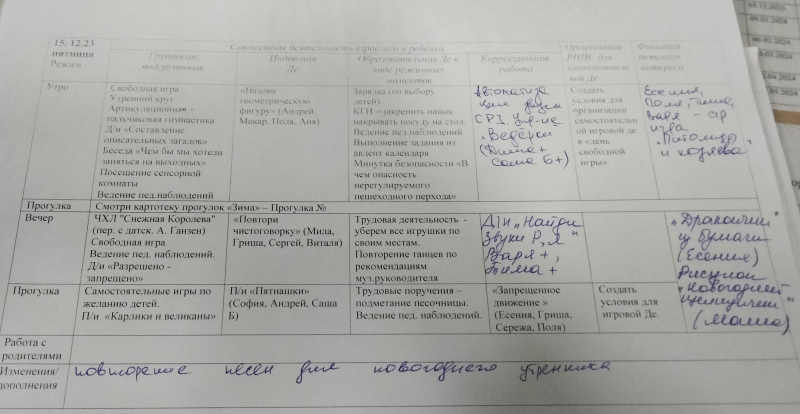 15.12.23
пятница
Режим
Совместная деятельность взрослого и ребенка
Групповая,
подгрупповая
Индив-ная
Де
Образовательная Де в
ходе режимных
моментов
Коррекционная
работа
Организация
РППС для
самостоятельн
ой Де
Фиксация
детского
интереса
Утро
Свободная игра
Утренний круг
Артикуляционная –
пальчиковая гимнастика
Д/и «Составление
описательных загадок»
Беседа «Чем бы мы хотели
заняться на выходных»
Посещение сенсорной
комнаты
Ведение пед.наблюдений
«Назови
геометрическую
фигуру» (Андрей,
Макар, Поля, Аня)
Зарядка (по выбору
детей).
КГН «закрепить навык
накрывать посуду на стол.
Ведение пед.наблюдений
Выполнение задания из
авдент календаря
Минутка безопасности «В
чем опасность
нерегулируемого
пешеходного перхода»
Автоматиза
ция звука
упр-ие
"Ведёрки
(Дима+
Саша Б+)
Создать
условия для
организации
самостоятельн
ой игровой де
в «день
свободной
игры».
Есения,
Поля, Тима,
Варя - с/р
игра
"Питомцы
и хозяева"
Прогулка
Смотри картотеку прогулок «Зима» – Прогулка №
Вечер
ЧХЛ "Снежная Королева"
(пер. с датск. А. Ганзен)
Свободная игра
Ведение пед. наблюдений.
Д/и «Разрешено -
запрещено»
«Повтори
чистоговорку» (Мила,
Гриша, Сергей, Виталя)
Трудовая деятельность -
уберем все игрушки по
своим местам.
Повторение танцев по
рекомендациям
муз.руководителя
Д/и "Найди
звуки Р, Л"
Варя+,
Тима+
"Дракончик"
из бумаги
(Есения)
Рисунок
"Новогодний
(Маша)
Прогулка
Самостоятельные игры по
желанию детей.
П/и «Карлики и великаны»
П/и «Пятнашки»
(София, Андрей, Саша
Б)
Трудовые поручения –
подметание песочницы.
Ведение пед. наблюдений.
"Запрещенное
движение »
(Есения, Гриша,
Сережа, Поля)
Создать
условия для
игровой Де.
Работа с
родителями
Изменения/
дополнения
повторение песен для новогоднего утренника